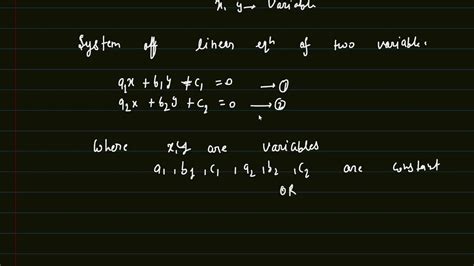 x, y → Variable
System off linear eqⁿ of two variable.
a₁x + b₁y + c₁ = 0 → ①
a₂x + b₂y + c₂ = 0 → ②
Where x,y are variables
a₁, b₁, c₁, a₂, b₂, c₂ are constant
OR